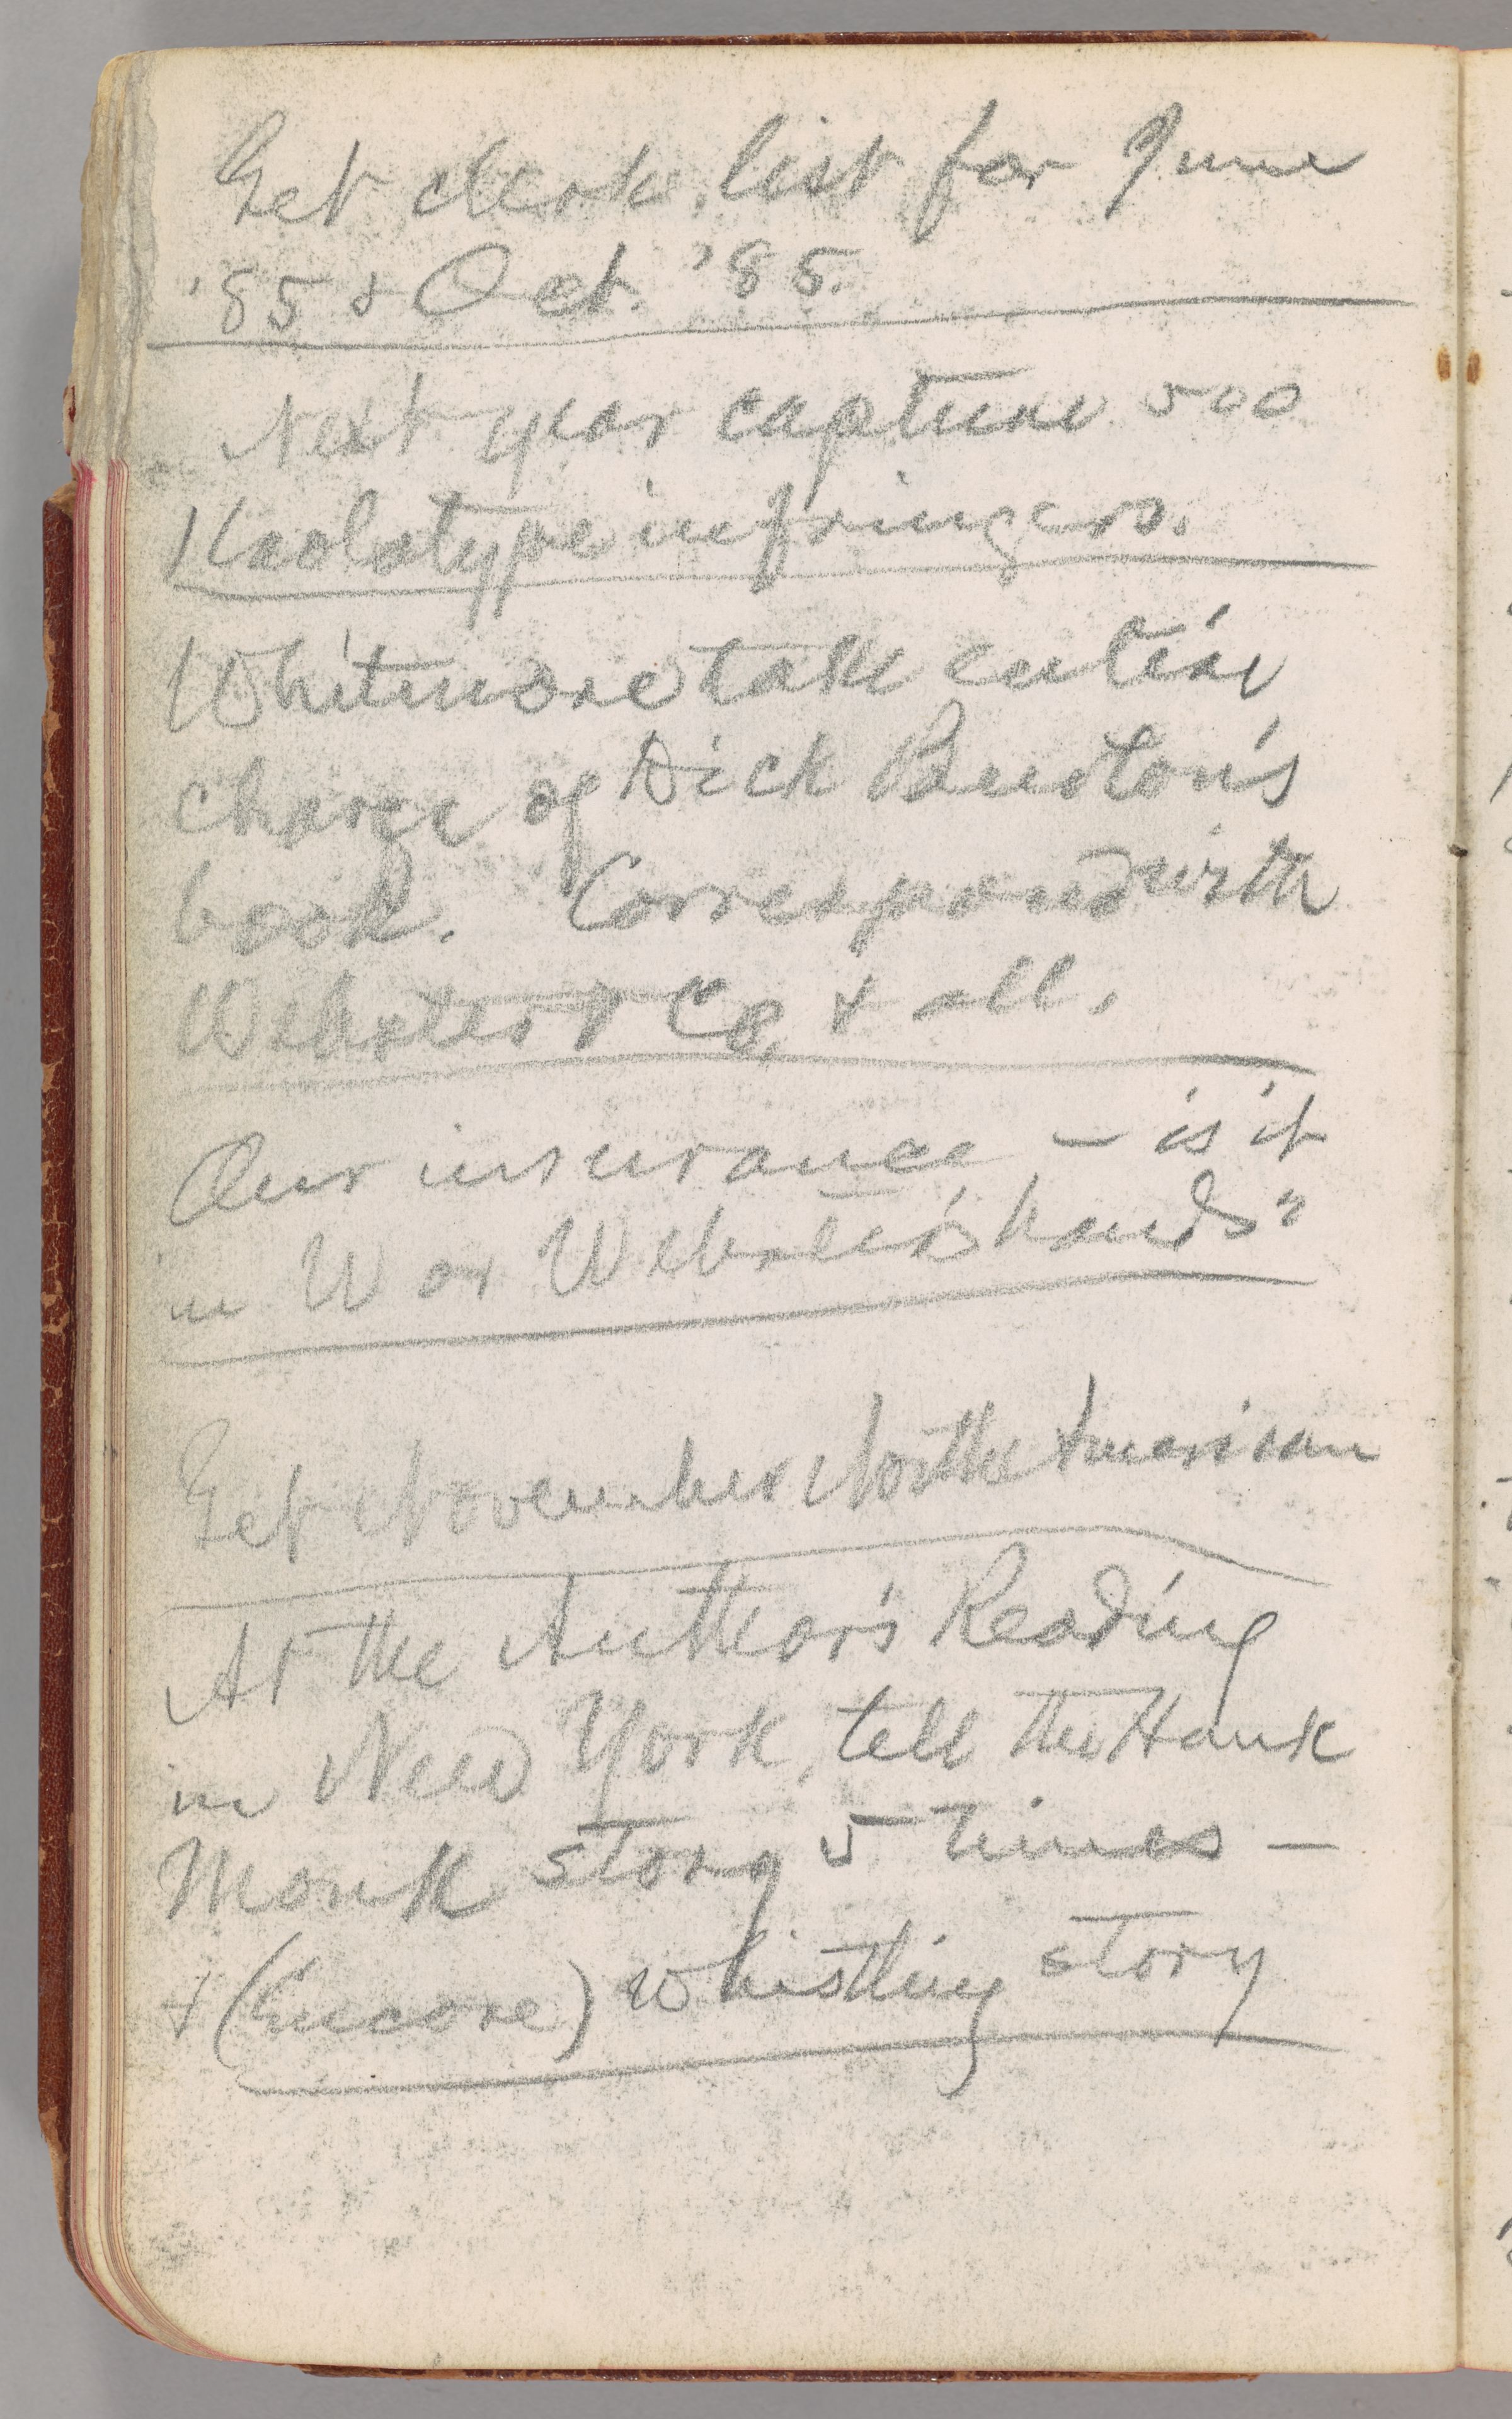 Get clerk list for June
'85 & Oct. '85.
Next year capture 500
Kaolatype infringers.
Whitmore take entire
charge of Dick Burton's
book. Correspond with
Webster & Co, & all.
Our insurance — is it
in W or Webster's hands"
Get November North American
At the Author's Reading
in New York, tell the Hank
Monk story 5 times —
& (Encore) Whistling story